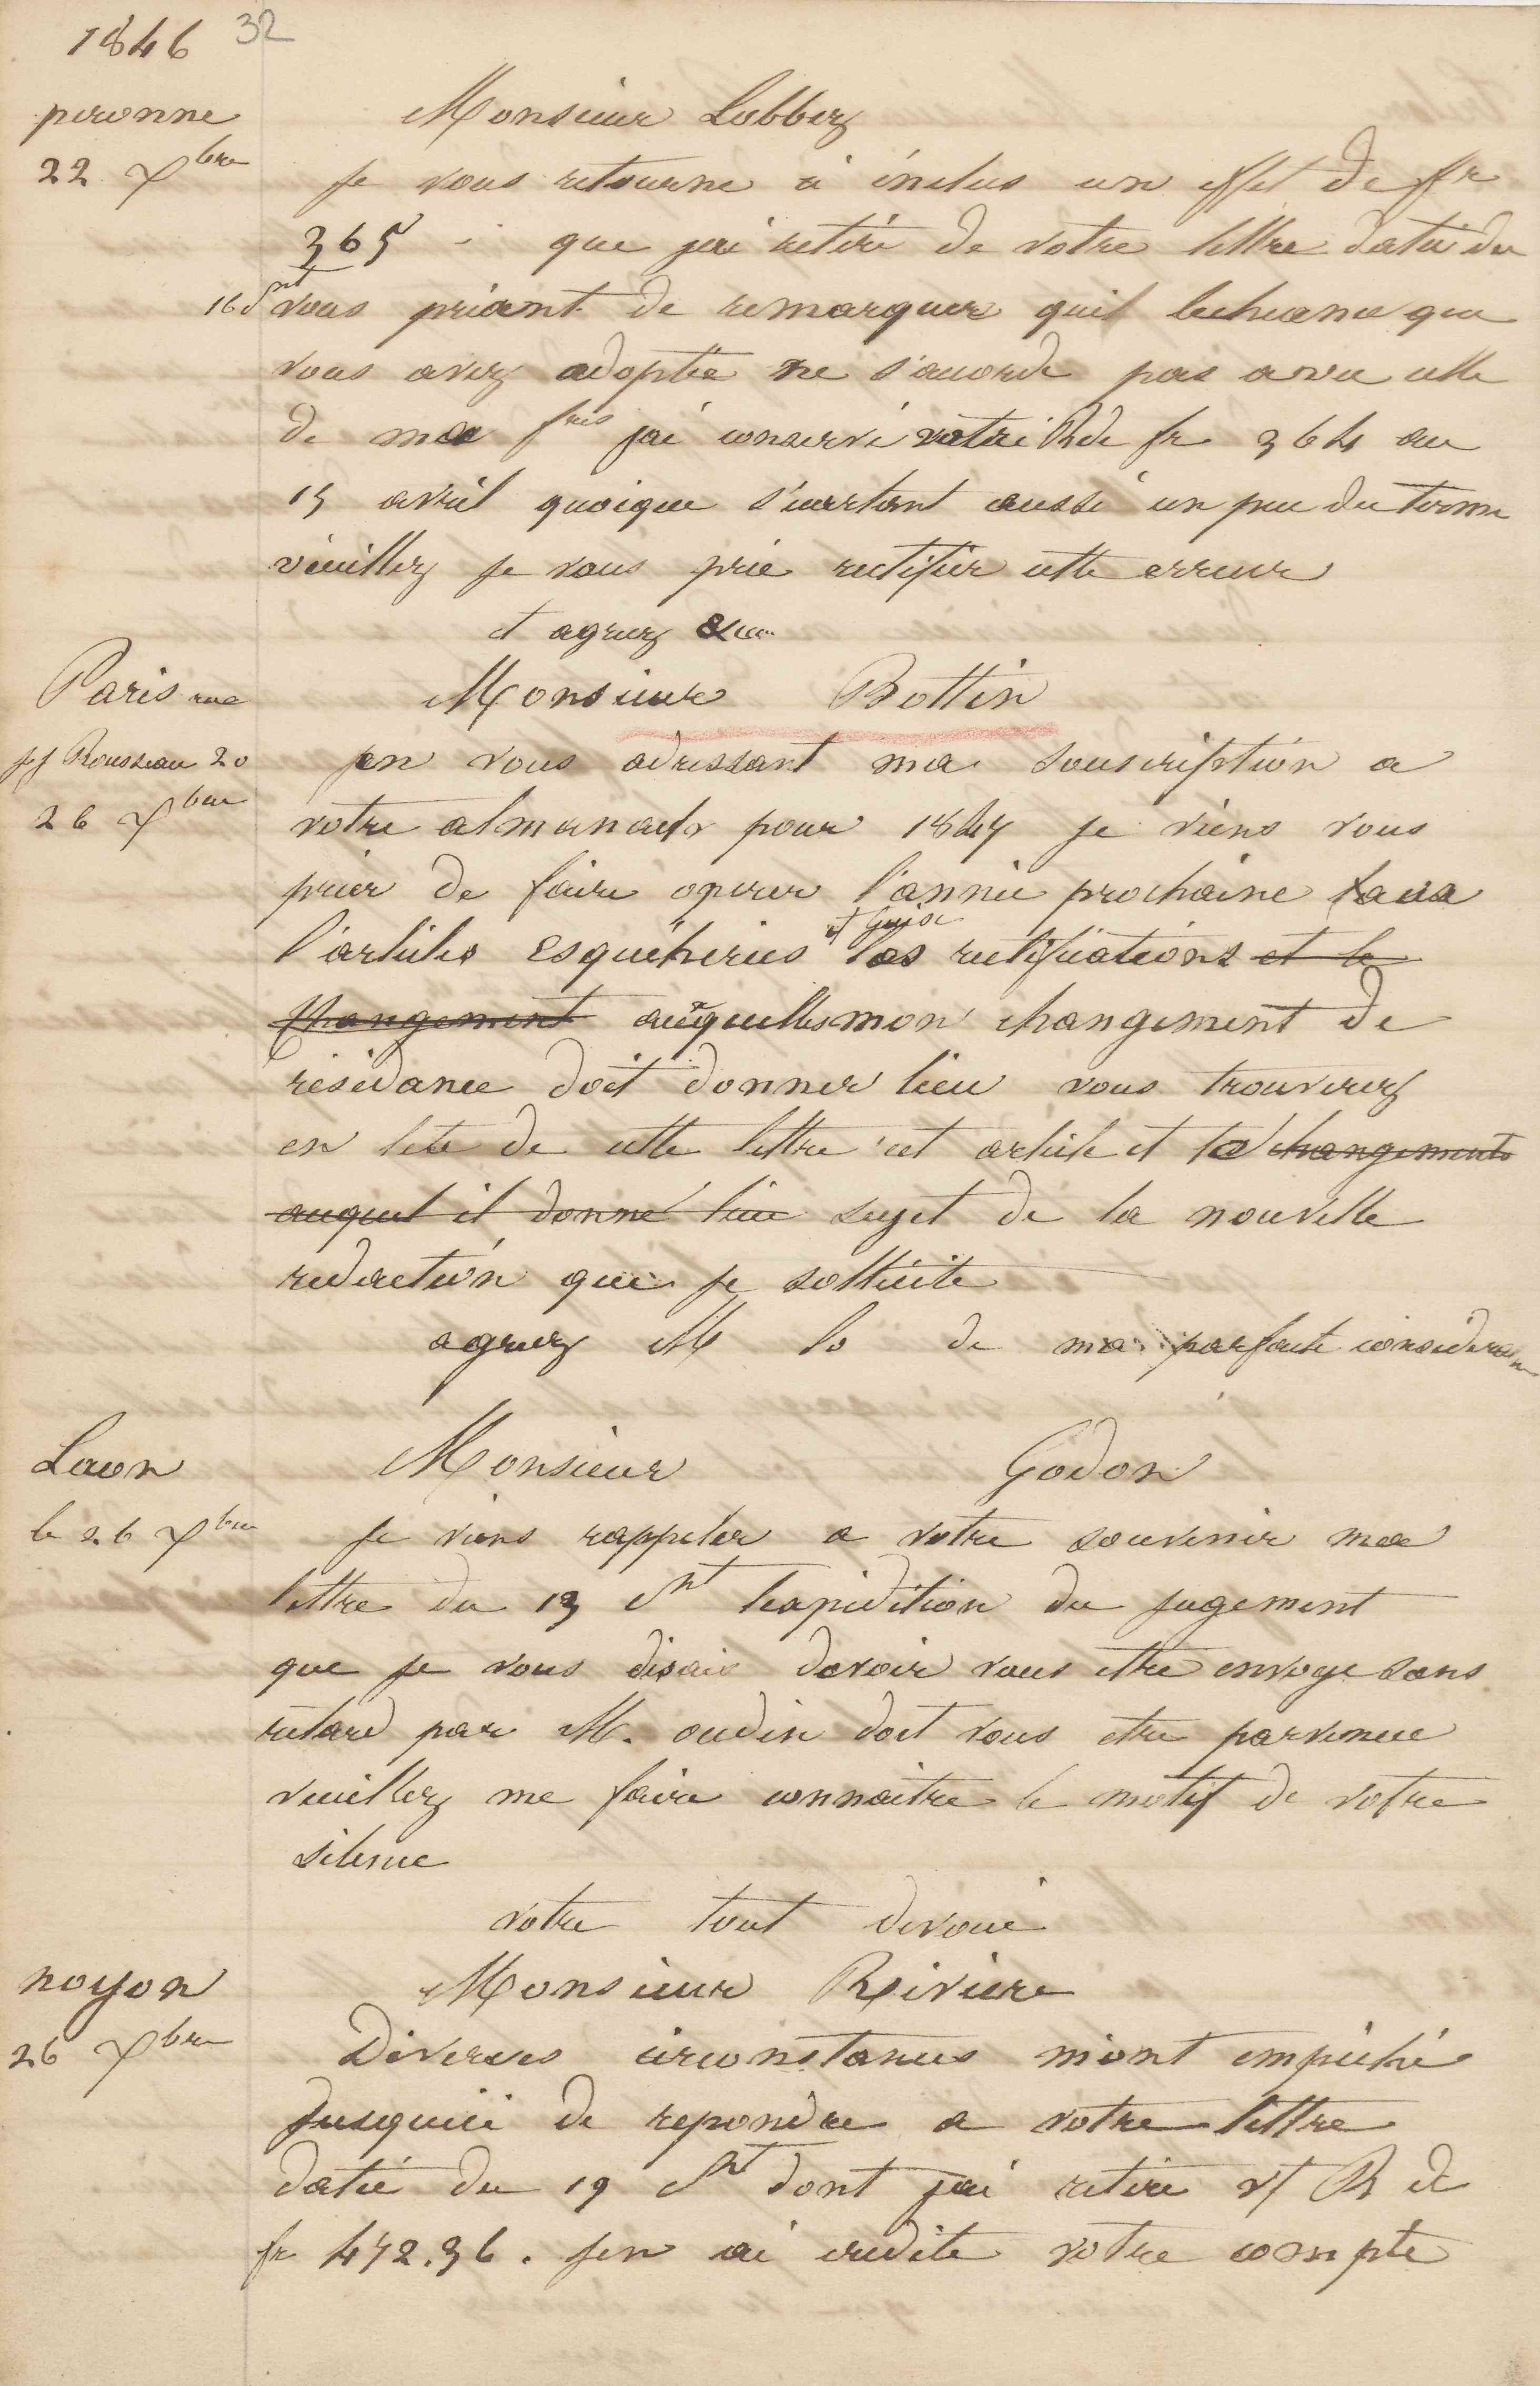 1846 32
peronne
22 Xbre
Monsieur Lobbez
je vous retourne ci inclus un effet de fr
365 - que jai retiré de votre lettre datée du
16 dnt vous priant de remarquer quil lecheance que
vous avez adoptée ne s'acorde pas avec celle
de ma fres jai conservé votre Rde fr 364 au
15 avril quoique s'ecartant aussi un peu du terme
veuillez je vous prie rectifier cette erreur
et agreez &c...
Paris rue
jj Rousseau 20
26 Xbre
Monsieur Bottin
en vous adressant ma souscription a
votre almanach pour 1847 je viens vous
prier de faire operer l'année prochaine
l'articles esquéheries et Guise les rectifications et le
changement auxquelles mon changement de
residance doit donner lieu vous trouverez
en tete de cette lettre cet article et le changements
auquel il donne lieu sujet de la nouvelle
redaction que je sollicite
agreez M la de ma parfaite consideraon
Laon
le 26 Xbre
Monsieur Godon
Je viens rappeler a votre souvenir ma
lettre du 13 dnt lexpedition du jugement
que je vous disais devoir vous etre envoye sans
retard par M. oudin doit vous etre parvenue
veuillez me faire connaitre le motif de votre
silence
votre tout devoué
noyon
26 Xbre
Monsieur Riviere
Diverses circonstances m'ont empeché
jusquici de repondre a votre lettre
datée du 19 dnt dont jai retiré vf R de
fr 472.36. jen ai credite votre compte